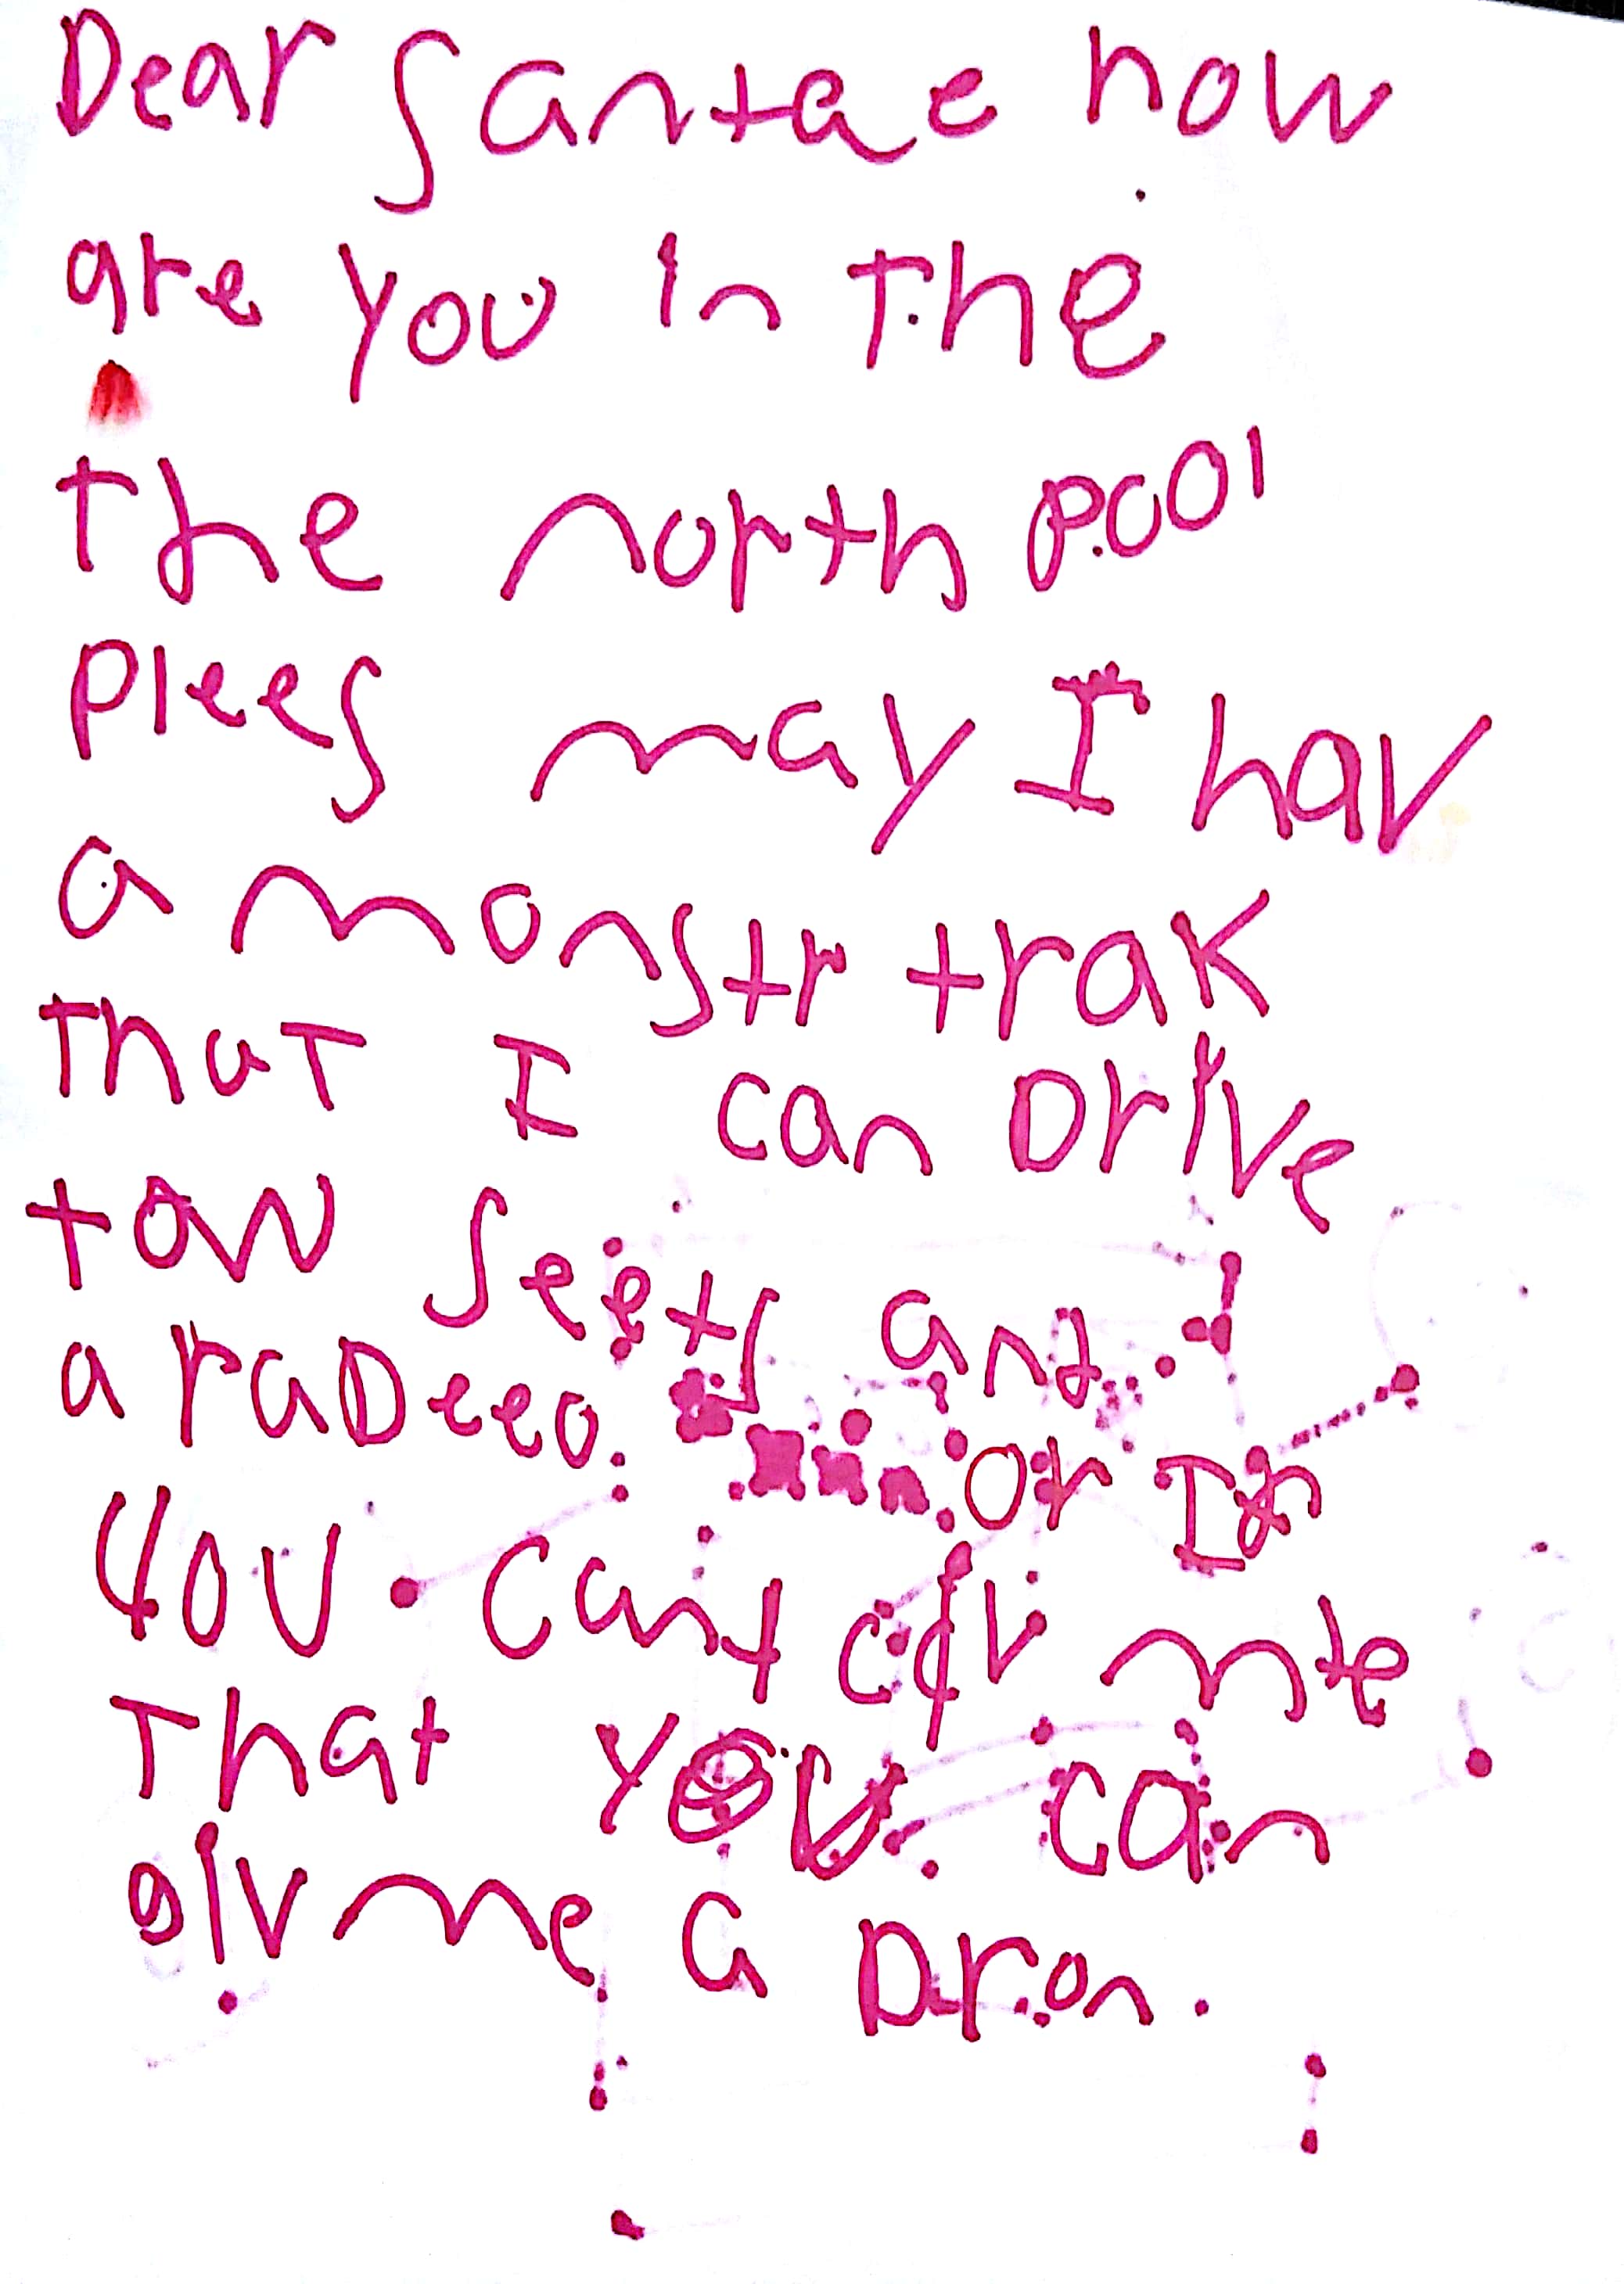 Dear Santae how
are you in The
The north pool
plees may I hav
a monstr trak
That I can Drive
tow seets and
a raDeeo. or If
you cant giv me
That you can
giv me a Dron.